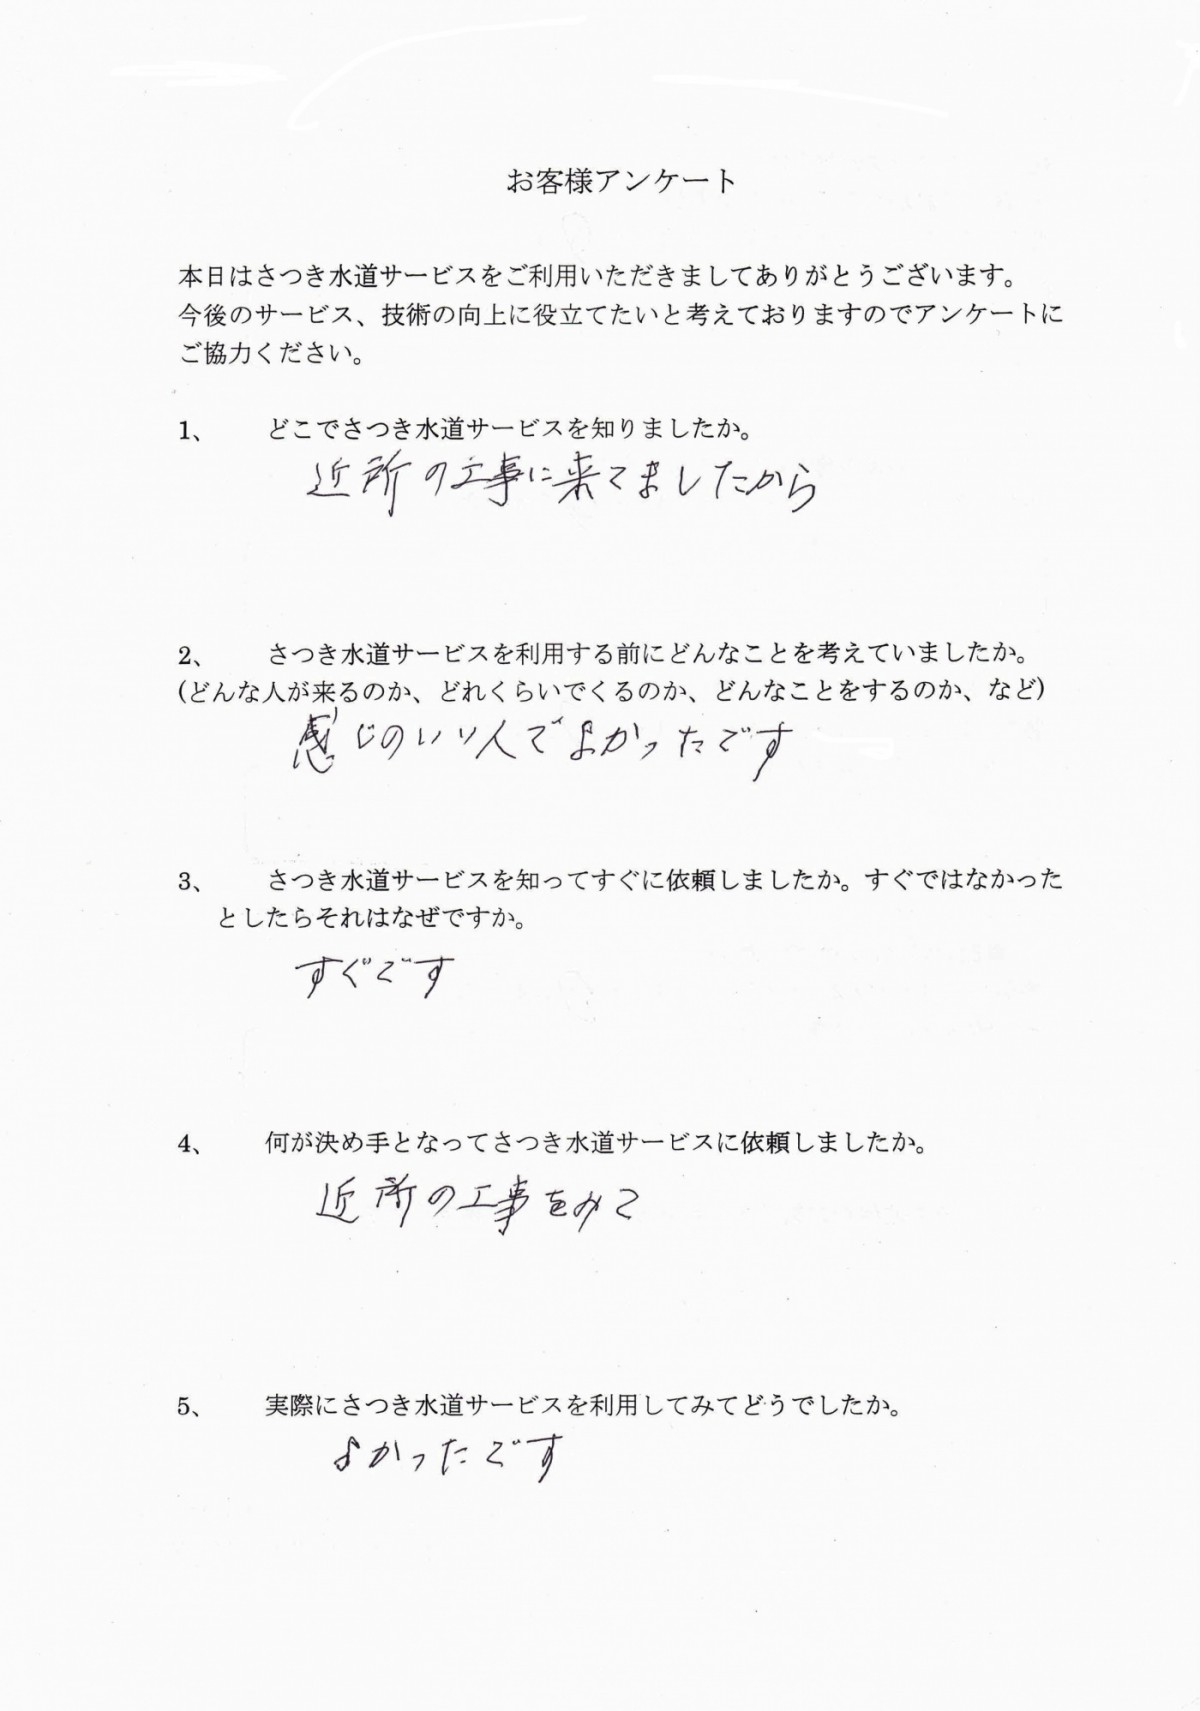 お客様アンケート
本日はさつき水道サービスをご利用いただきましてありがとうございます。
今後のサービス、技術の向上に役立てたいと考えておりますのでアンケートに
ご協力ください。
1、 どこでさつき水道サービスを知りましたか。
近所の工事に来てましたから
2、 さつき水道サービスを利用する前にどんなことを考えていましたか。
(どんな人が来るのか、どれくらいでくるのか、どんなことをするのか、など)
感じのいい人でよかったです
3、 さつき水道サービスを知ってすぐに依頼しましたか。すぐではなかった
としたらそれはなぜですか。
すぐです
4、 何が決め手となってさつき水道サービスに依頼しましたか。
近所の工事をみて
5、 実際にさつき水道サービスを利用してみてどうでしたか。
よかったです